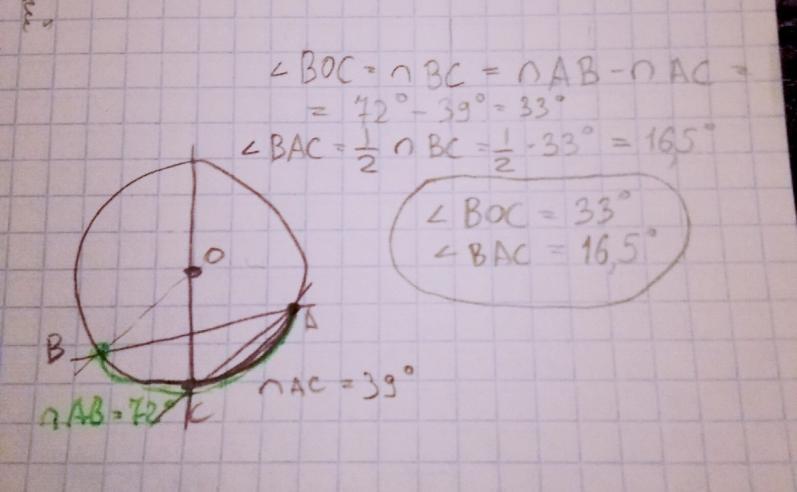 ∠ BOC = ∩ BC = ∩ AB - ∩ AC =
= 72° - 39° = 33°
∠ BAC = 1/2 ∩ BC = 1/2 · 33° = 16,5°
∠ BOC = 33°
∠ BAC = 16,5°
O
A
B
∩ AC = 39°
∩ AB = 72°
C